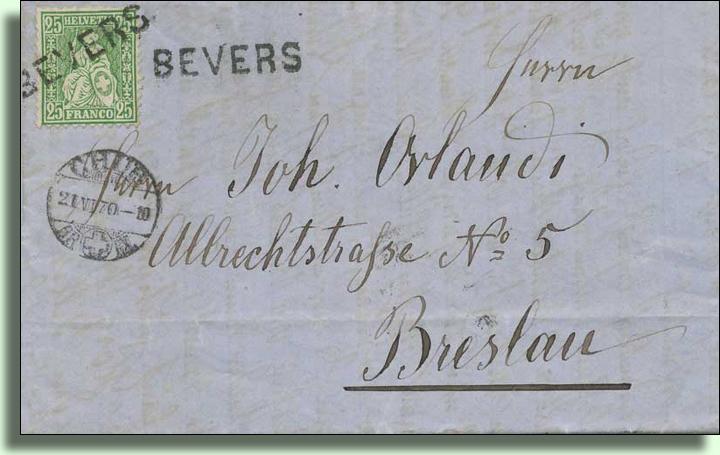 25 HELVETIA 25
25 FRANCO 25
BEVERS
BEVERS
Herrn
Herrn Joh. Orlandi
Albrechtstraße No. 5
Breslau
CHUR
21 VI 70 — 10